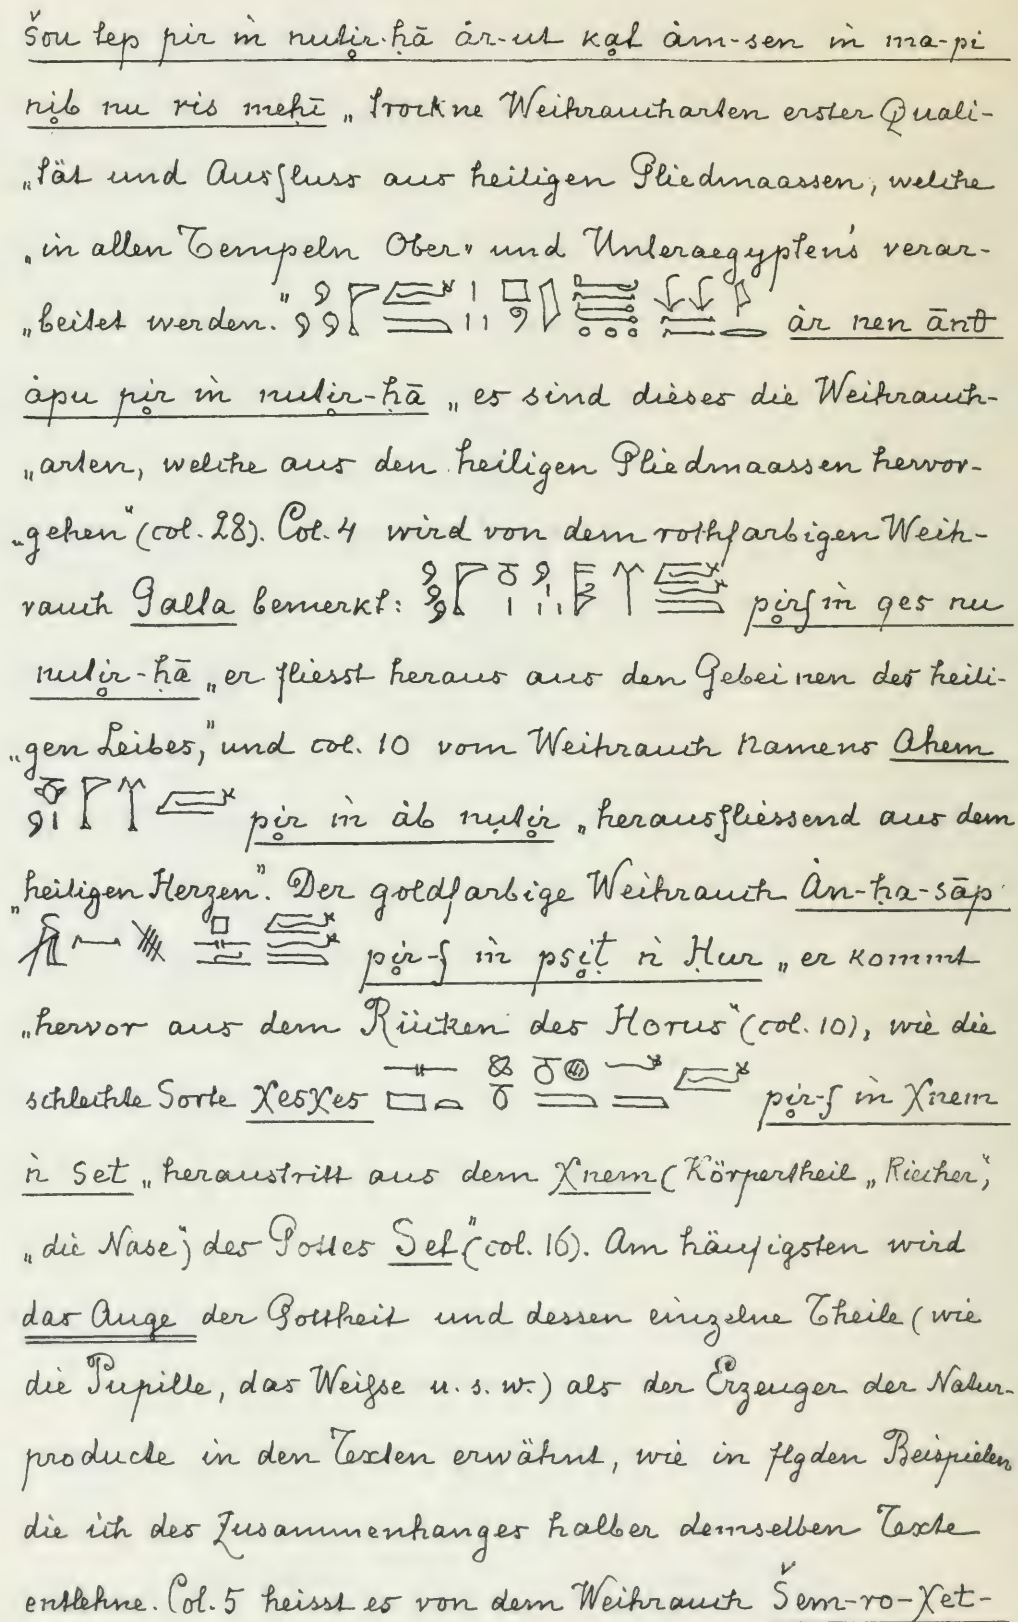 Šou tep pir m nutir-ḥā ár-ut kat ám-sen m ma-pi
nib nu ris meḥi „ trockne Weihraucharten erster Quali-
„tät und Ausfluss aus heiligen Gliedmaassen, welche
„in allen Tempeln Ober- und Unteraegyptens verar-
„beitet werden." ár nen ānt
ápu pir m nutir-ḥā „es sind dieses die Weihrauch-
„arten, welche aus den heiligen Gliedmaassen hervor-
„gehen" (col. 28). Col. 4 wird von dem rothfarbigen Weih-
rauch Galla bemerkt: pirf m qes nu
nutir-ḥā „er fliesst heraus aus den Gebeinen des heili-
„gen Leibes," und col. 10 vom Weihrauch Namens Ahem
pir m áb nutir „herausfliessend aus dem
„heiligen Herzen". Der goldfarbige Weihrauch Án-ḥa-sāp
pir-f m psiṭ n Ḥur „er kommt
„hervor aus dem Rücken des Horus" (col. 10), wie die
schlechte Sorte χesχes pir-f m χnem
n Set „heraustritt aus dem χnem (Körpertheil „Riecher",
„die Nase") des Gottes Set" (col. 16). Am häufigsten wird
das Auge der Gottheit und dessen einzelne Theile (wie
die Pupille, das Weisse u. s. w.) als der Erzeuger der Natur-
producte in den Texten erwähnt, wie in flgden Beispielen
die ich des Zusammenhanges halber demselben Texte
entlehne. Col. 5 heisst es von dem Weihrauch Šem-ro-χet-